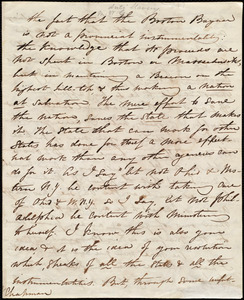 The fact that the Boston Bazaar
is not a provincial instrumentality;
the knowledge that its proceeds are
not spent in Boston or Massachusetts,
but in maintaining a Beacon on the
highest hill
of Salvation. The mere effort to save
the nation, saves the State that makes
it. The State that can work for other
States has done for itself a more effect-
ual work than any other agencies can
do for it. As I say let not Ohio & Wes-
tern N.Y. be content with taking care
of Ohio & W.N.Y. so I say let not Phil-
adelphia be content with
to herself. I know this is also your
idea & it is the idea of your resolution
which speaks of all the State & all the
instrumentalities. But through some
Chapman